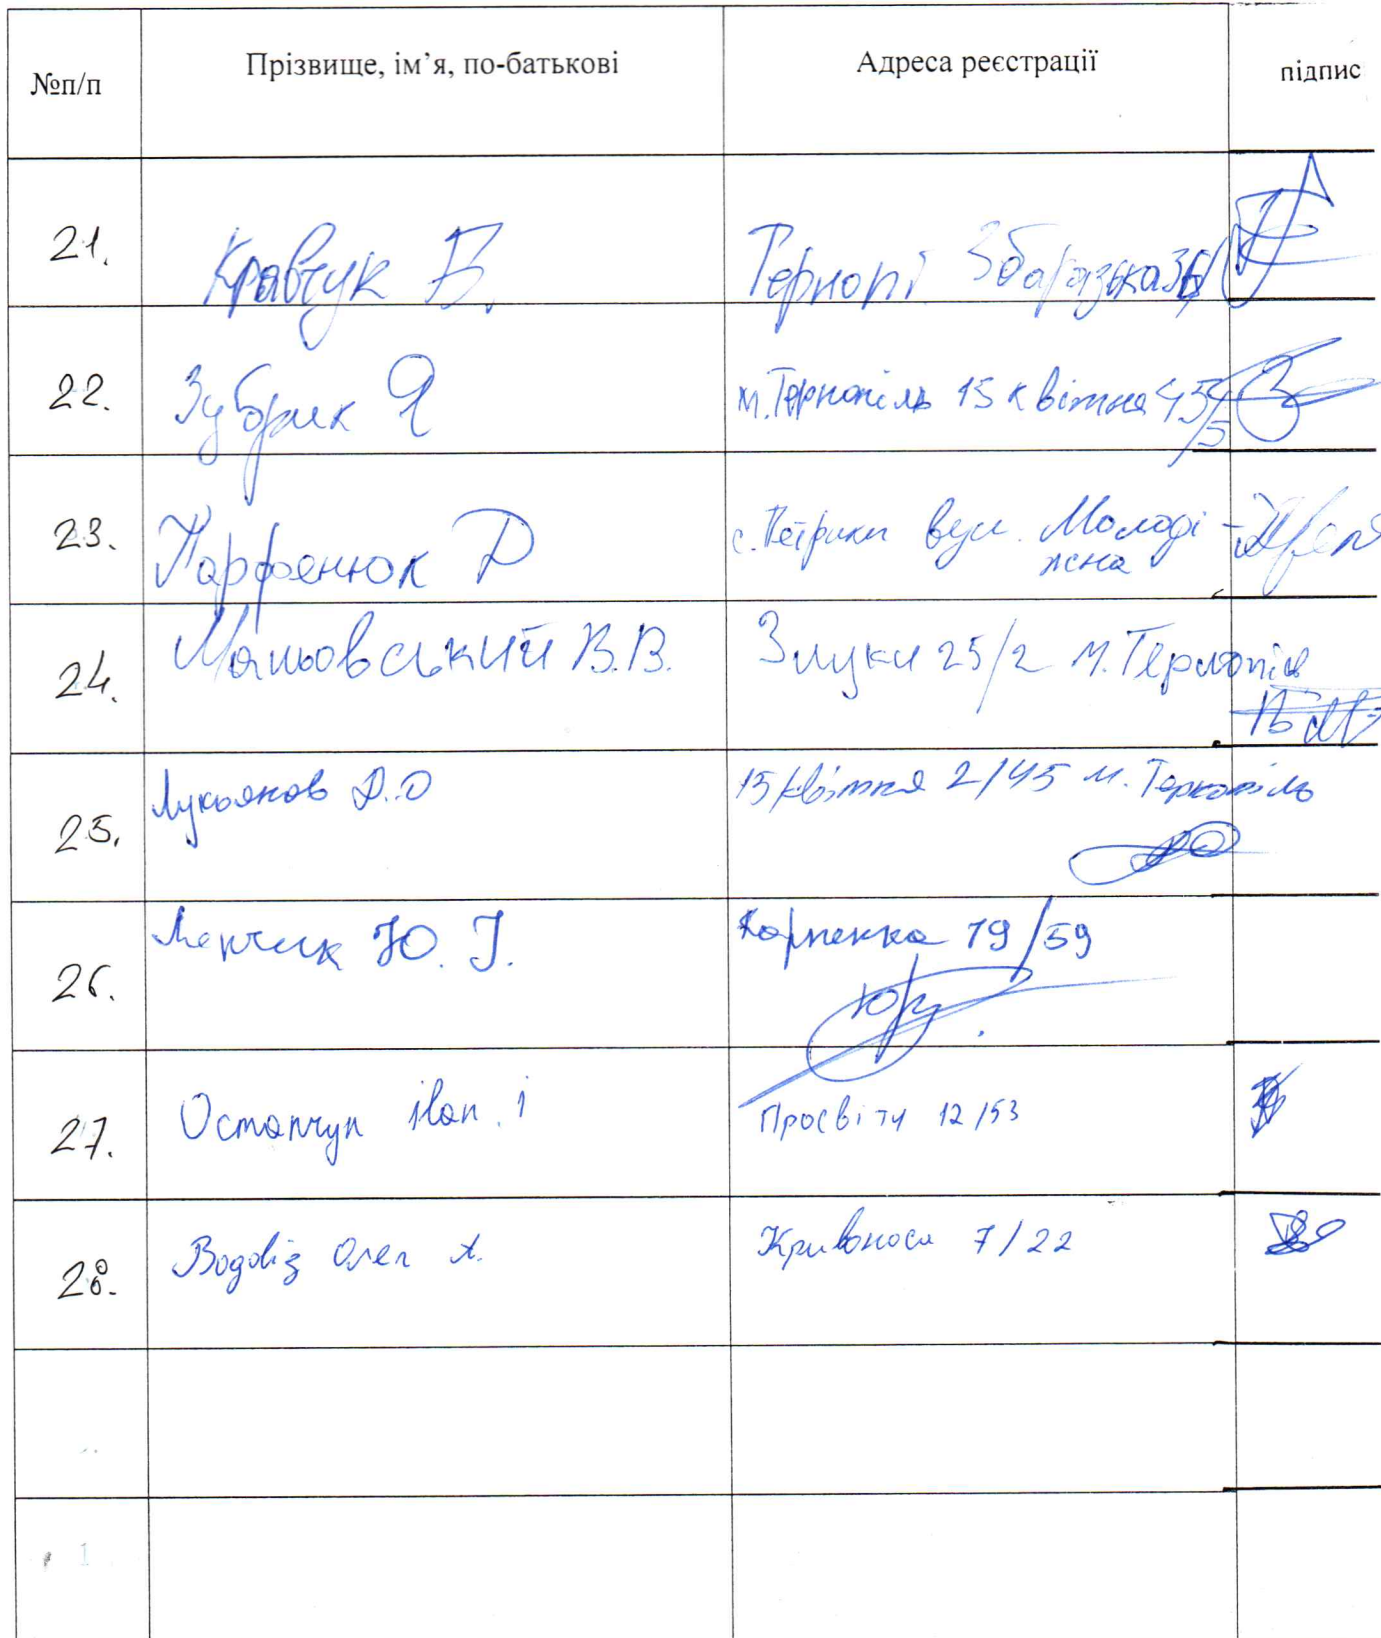 №п/п Прізвище, ім’я, по-батькові Адреса реєстрації підпис
21. Кравчук Б. Тернопі Збаразька 36/
22. Зубрик Я м. Тернопіль 15 квітня 45/5
23. Парфенюк Д с. Петрики вул. Молоді
жна
24. В.В. Злуки 25/2 м. Тернопіль
25. Лукьянов Д.О 15 квітня 2/45 м. Тернопіль
26. Ю. І. Карпенка 19/59
27. Остапчук Іван. І Просвіти 12/53
28. Водовіз Олег А. Кривоноса 7/22